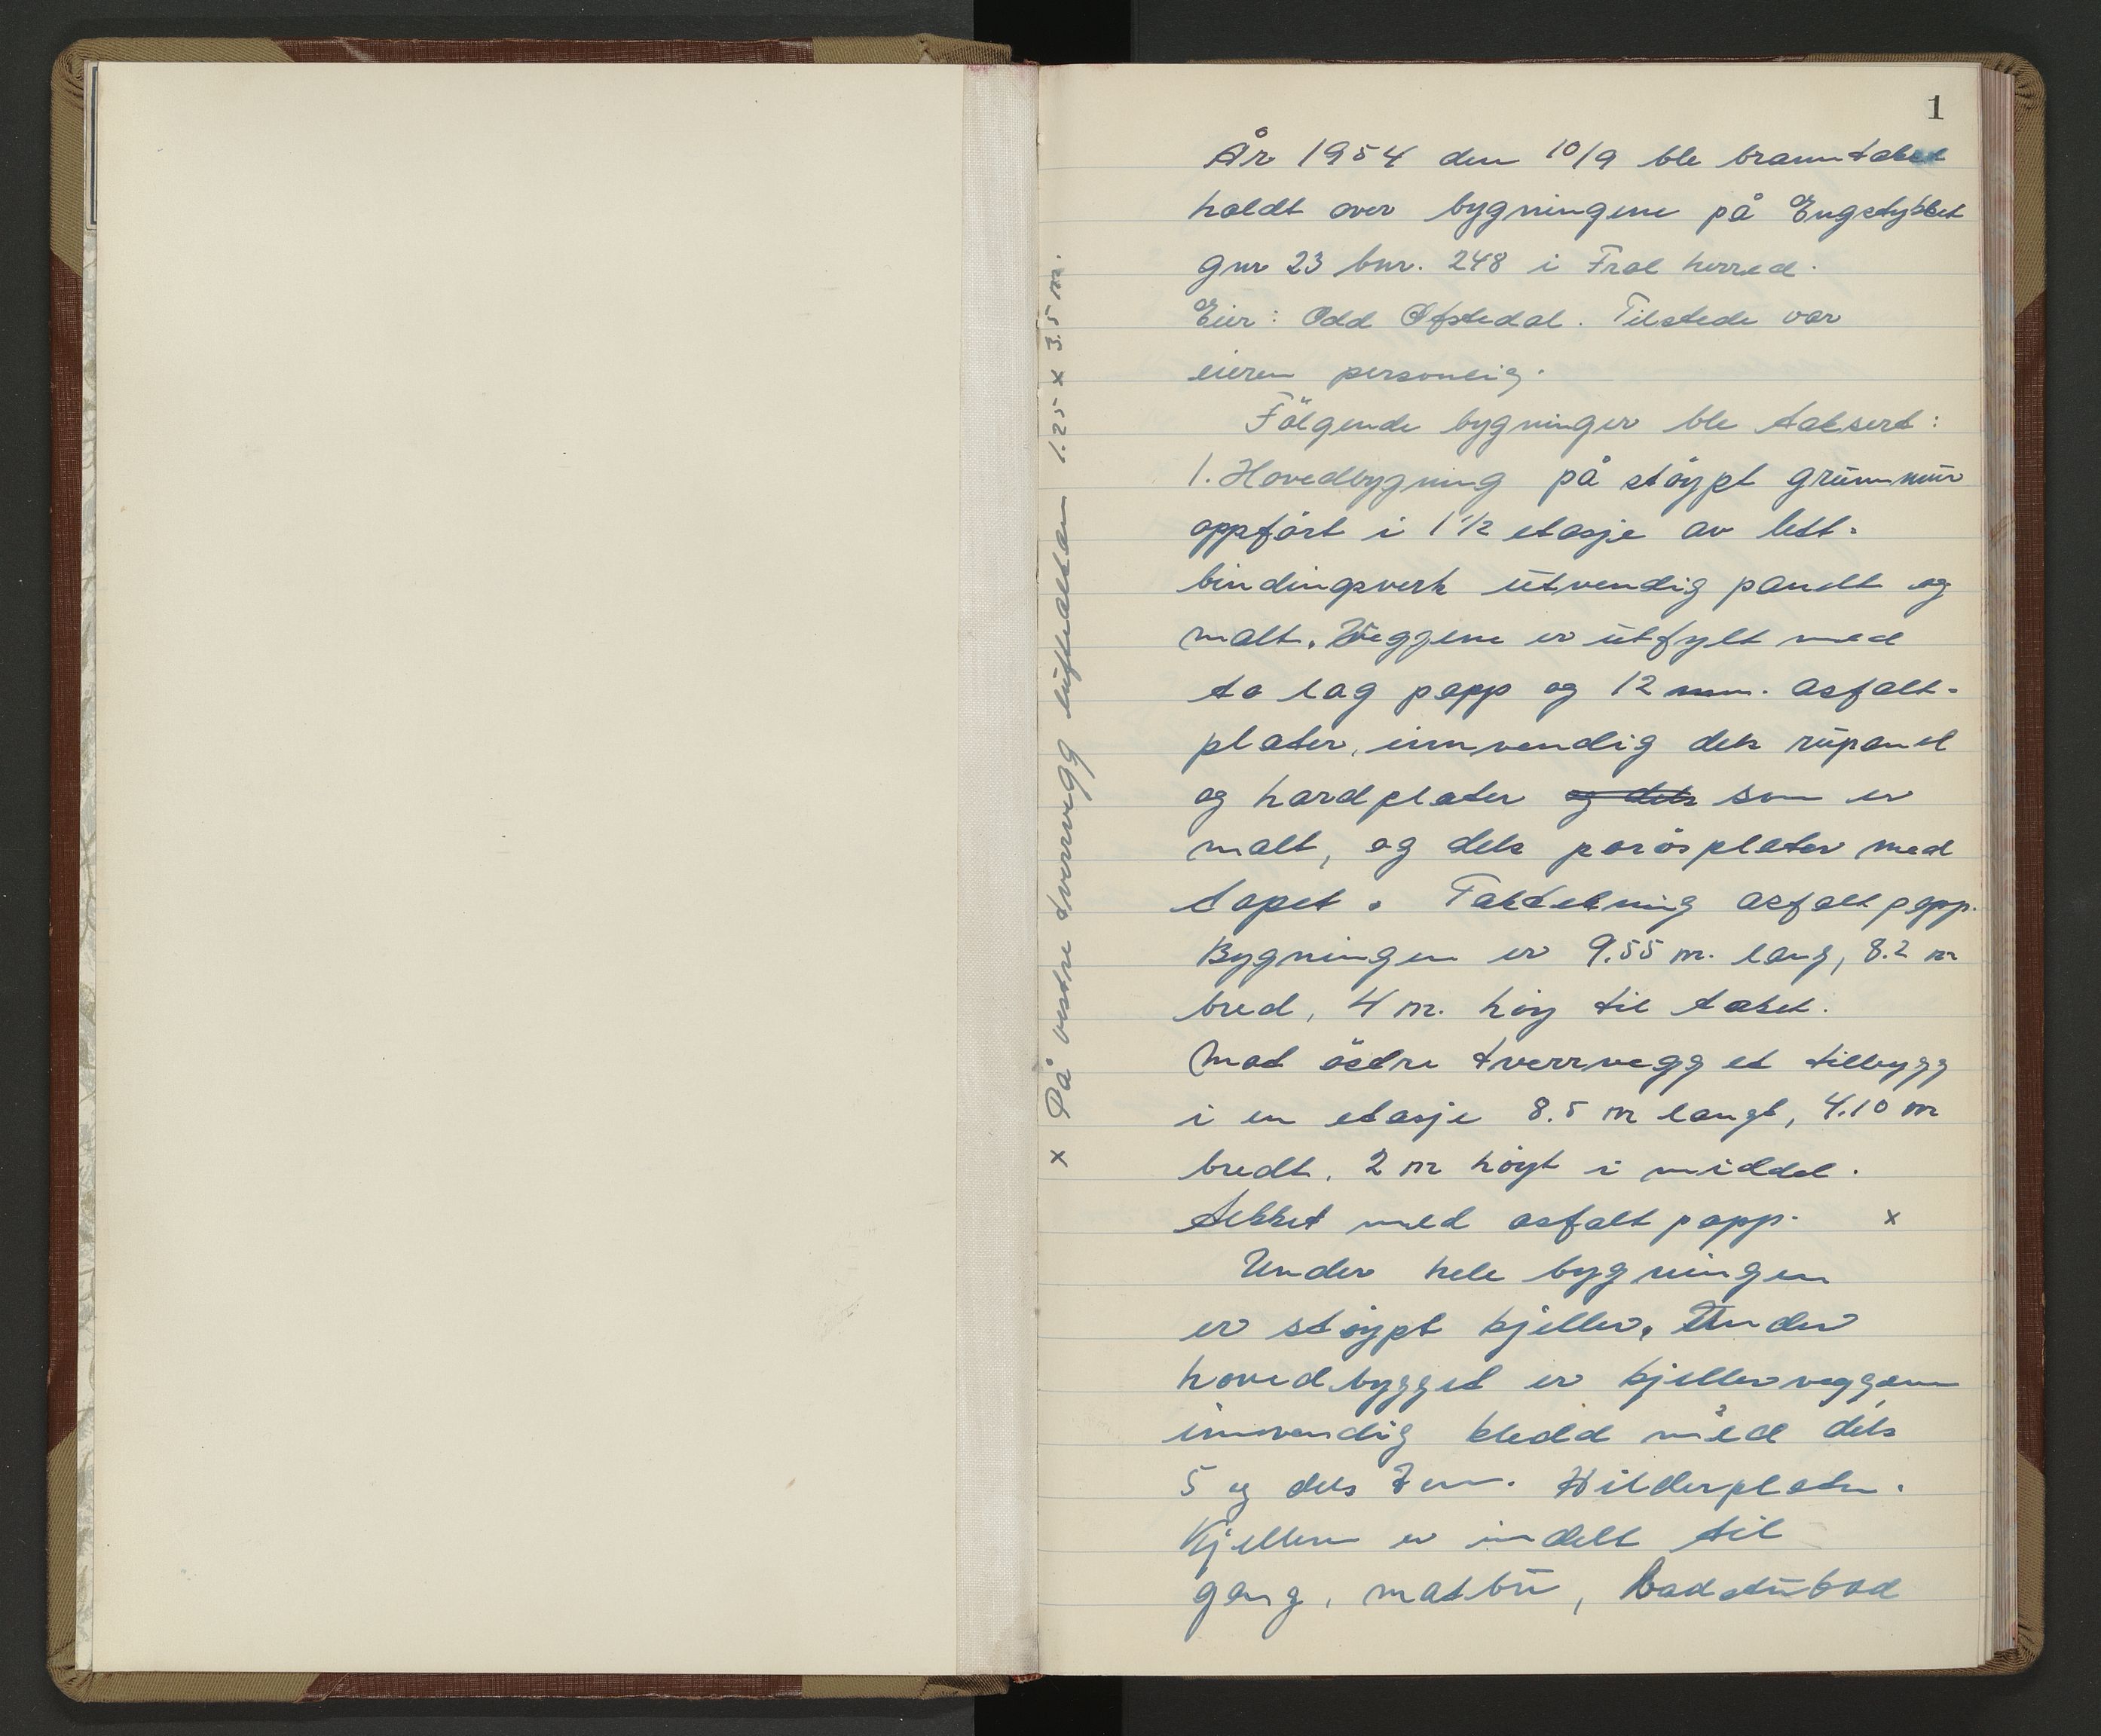 1
År 1954 den 10/9 ble branntakst
holdt over bygningene på Engstykket
gnr 23 bnr. 248 i Frol herred.
Eier: Odd Øfstedal. Tilstede var
eieren personlig.
Følgende bygninger ble taksert:
1. Hovedbygning på støypt grunnmur
oppført i 1 1/2 etasje av lett-
bindingsverk utvendig panelt og
malt. Veggene er utfylt med
to lag papp og 12 mm. asfalt-
plater, innvendig dels rupanel
og hardplater og dels som er
malt, og dels porøsplater med
tapet. Taktekning asfaltpapp.
Bygningen er 9.55 m. lang, 8.2 m
bred, 4 m. høy til taket.
Mot östre tverrvegg et tilbygg
i en etasje 8.5 m langt, 4.10 m
bredt, 2 m høyt i middel.
tekket med asfaltpapp. x
Under hele bygningen
er støypt kjeller. Under
hovedbygget er kjellerveggene
innvendig kledd med dels
5 og dels 7 cm. plater.
Kjelleren er indelt til
gang, matbu, badstubad
x På vestre tverrvegg luftealtan 1.25 x 3.5 m.